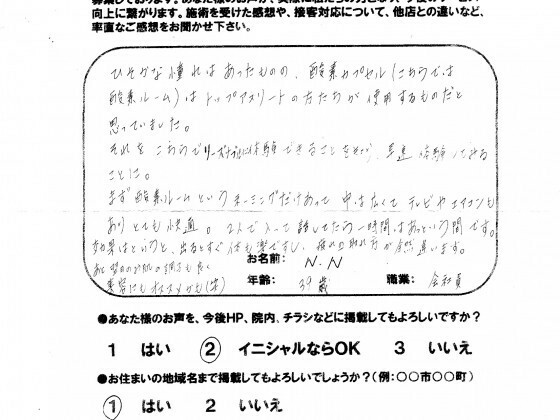 募集しております。あなた様のお声が、
向上に繋がります。施術を受けた感想や、接客対応について、他店との違いなど、
率直なご感想をお聞かせ下さい。
ひそかな憧れはあったものの、酸素カプセル(こちらでは
酸素ルーム)はトップアスリートの方たちが使用するものだと
思っていました。
それをこちらでリーズナブルに体験できることを 早速 体験
ことに。
まず酸素ルームというネーミングだけあって中は広くてテレビやエアコンも
ありとても快適。2人で入って話してたら一時間はあっという間です。
効果はというと、出るとすぐ体も楽ですし、疲れの取れ方が全然違います。
お肌の調子も良く
美容にもオススメかも(笑)
お名前: N.N
年齢: 39歳 職業: 会社員
●あなた様のお声を、今後HP、院内、チラシなどに掲載してもよろしいですか?
1 はい 2 イニシャルならOK 3 いいえ
●お住まいの地域名まで掲載してもよろしいでしょうか?(例:○○市○○町)
1 はい 2 いいえ